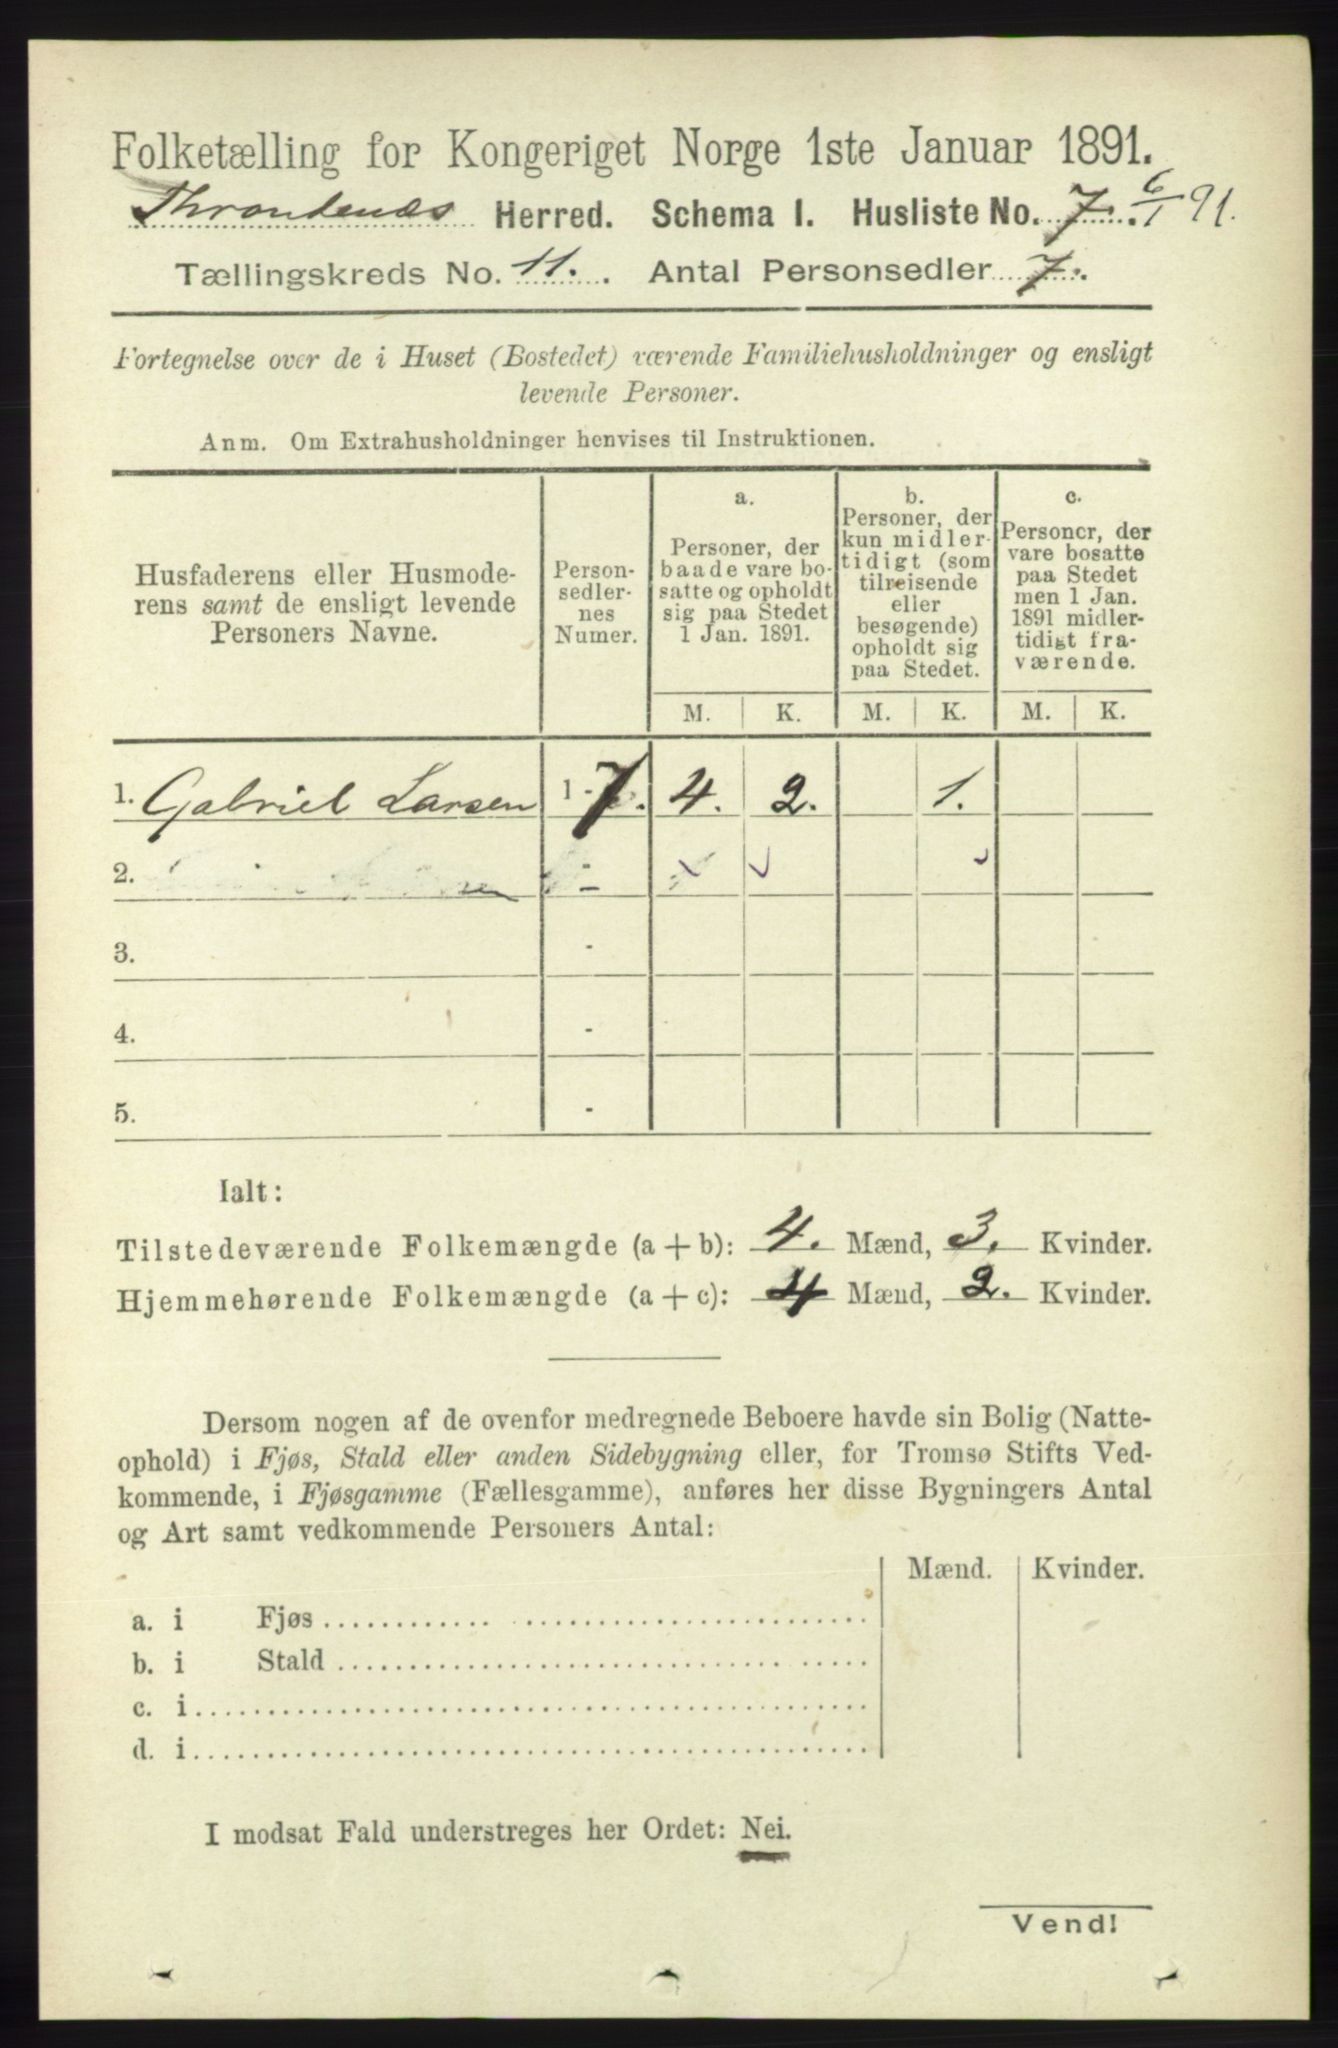 Folketælling for Kongeriget Norge 1ste Januar 1891.
Throndenæs Herred. Schema I. Husliste No. 7. 6/1 91.
Tællingskreds No. 11. Antal Personsedler 7.
Fortegnelse over de i Huset (Bostedet) værende Familiehusholdninger og ensligt
levende Personer.
Anm. Om Extrahusholdninger henvises til Instruktionen.
Husfaderens eller Husmode-
rens samt de ensligt levende
Personers Navne.
Person-
sedler-
nes
Numer.
a.
Personer, der
baade vare bo-
satte og opholdt
sig paa Stedet
1 Jan. 1891.
b.
Personer, der
kun midler-
tidigt (som
tilreisende
eller
besøgende)
opholdt sig
paa Stedet.
c.
Personer, der
vare bosatte
paa Stedet
men 1 Jan.
1891 midler-
tidigt fra-
værende.
M. K. M. K. M. K.
1. Gabriel Larsen 1-7. 4. 2. 1.
2. -
3. -
4. -
5. -
Ialt:
Tilstedeværende Folkemængde (a + b): 4. Mænd, 3. Kvinder.
Hjemmehørende Folkemængde (a + c): 4 Mænd, 2. Kvinder.
Dersom nogen af de ovenfor medregnede Beboere havde sin Bolig (Natte-
ophold) i Fjøs, Stald eller anden Sidebygning eller, for Tromsø Stifts Ved-
kommende, i Fjøsgamme (Fællesgamme), anføres her disse Bygningers Antal
og Art samt vedkommende Personers Antal:
Mænd. Kvinder.
a. i Fjøs
b. i Stald
c. i
d. i
I modsat Fald understreges her Ordet: Nei.
Vend!